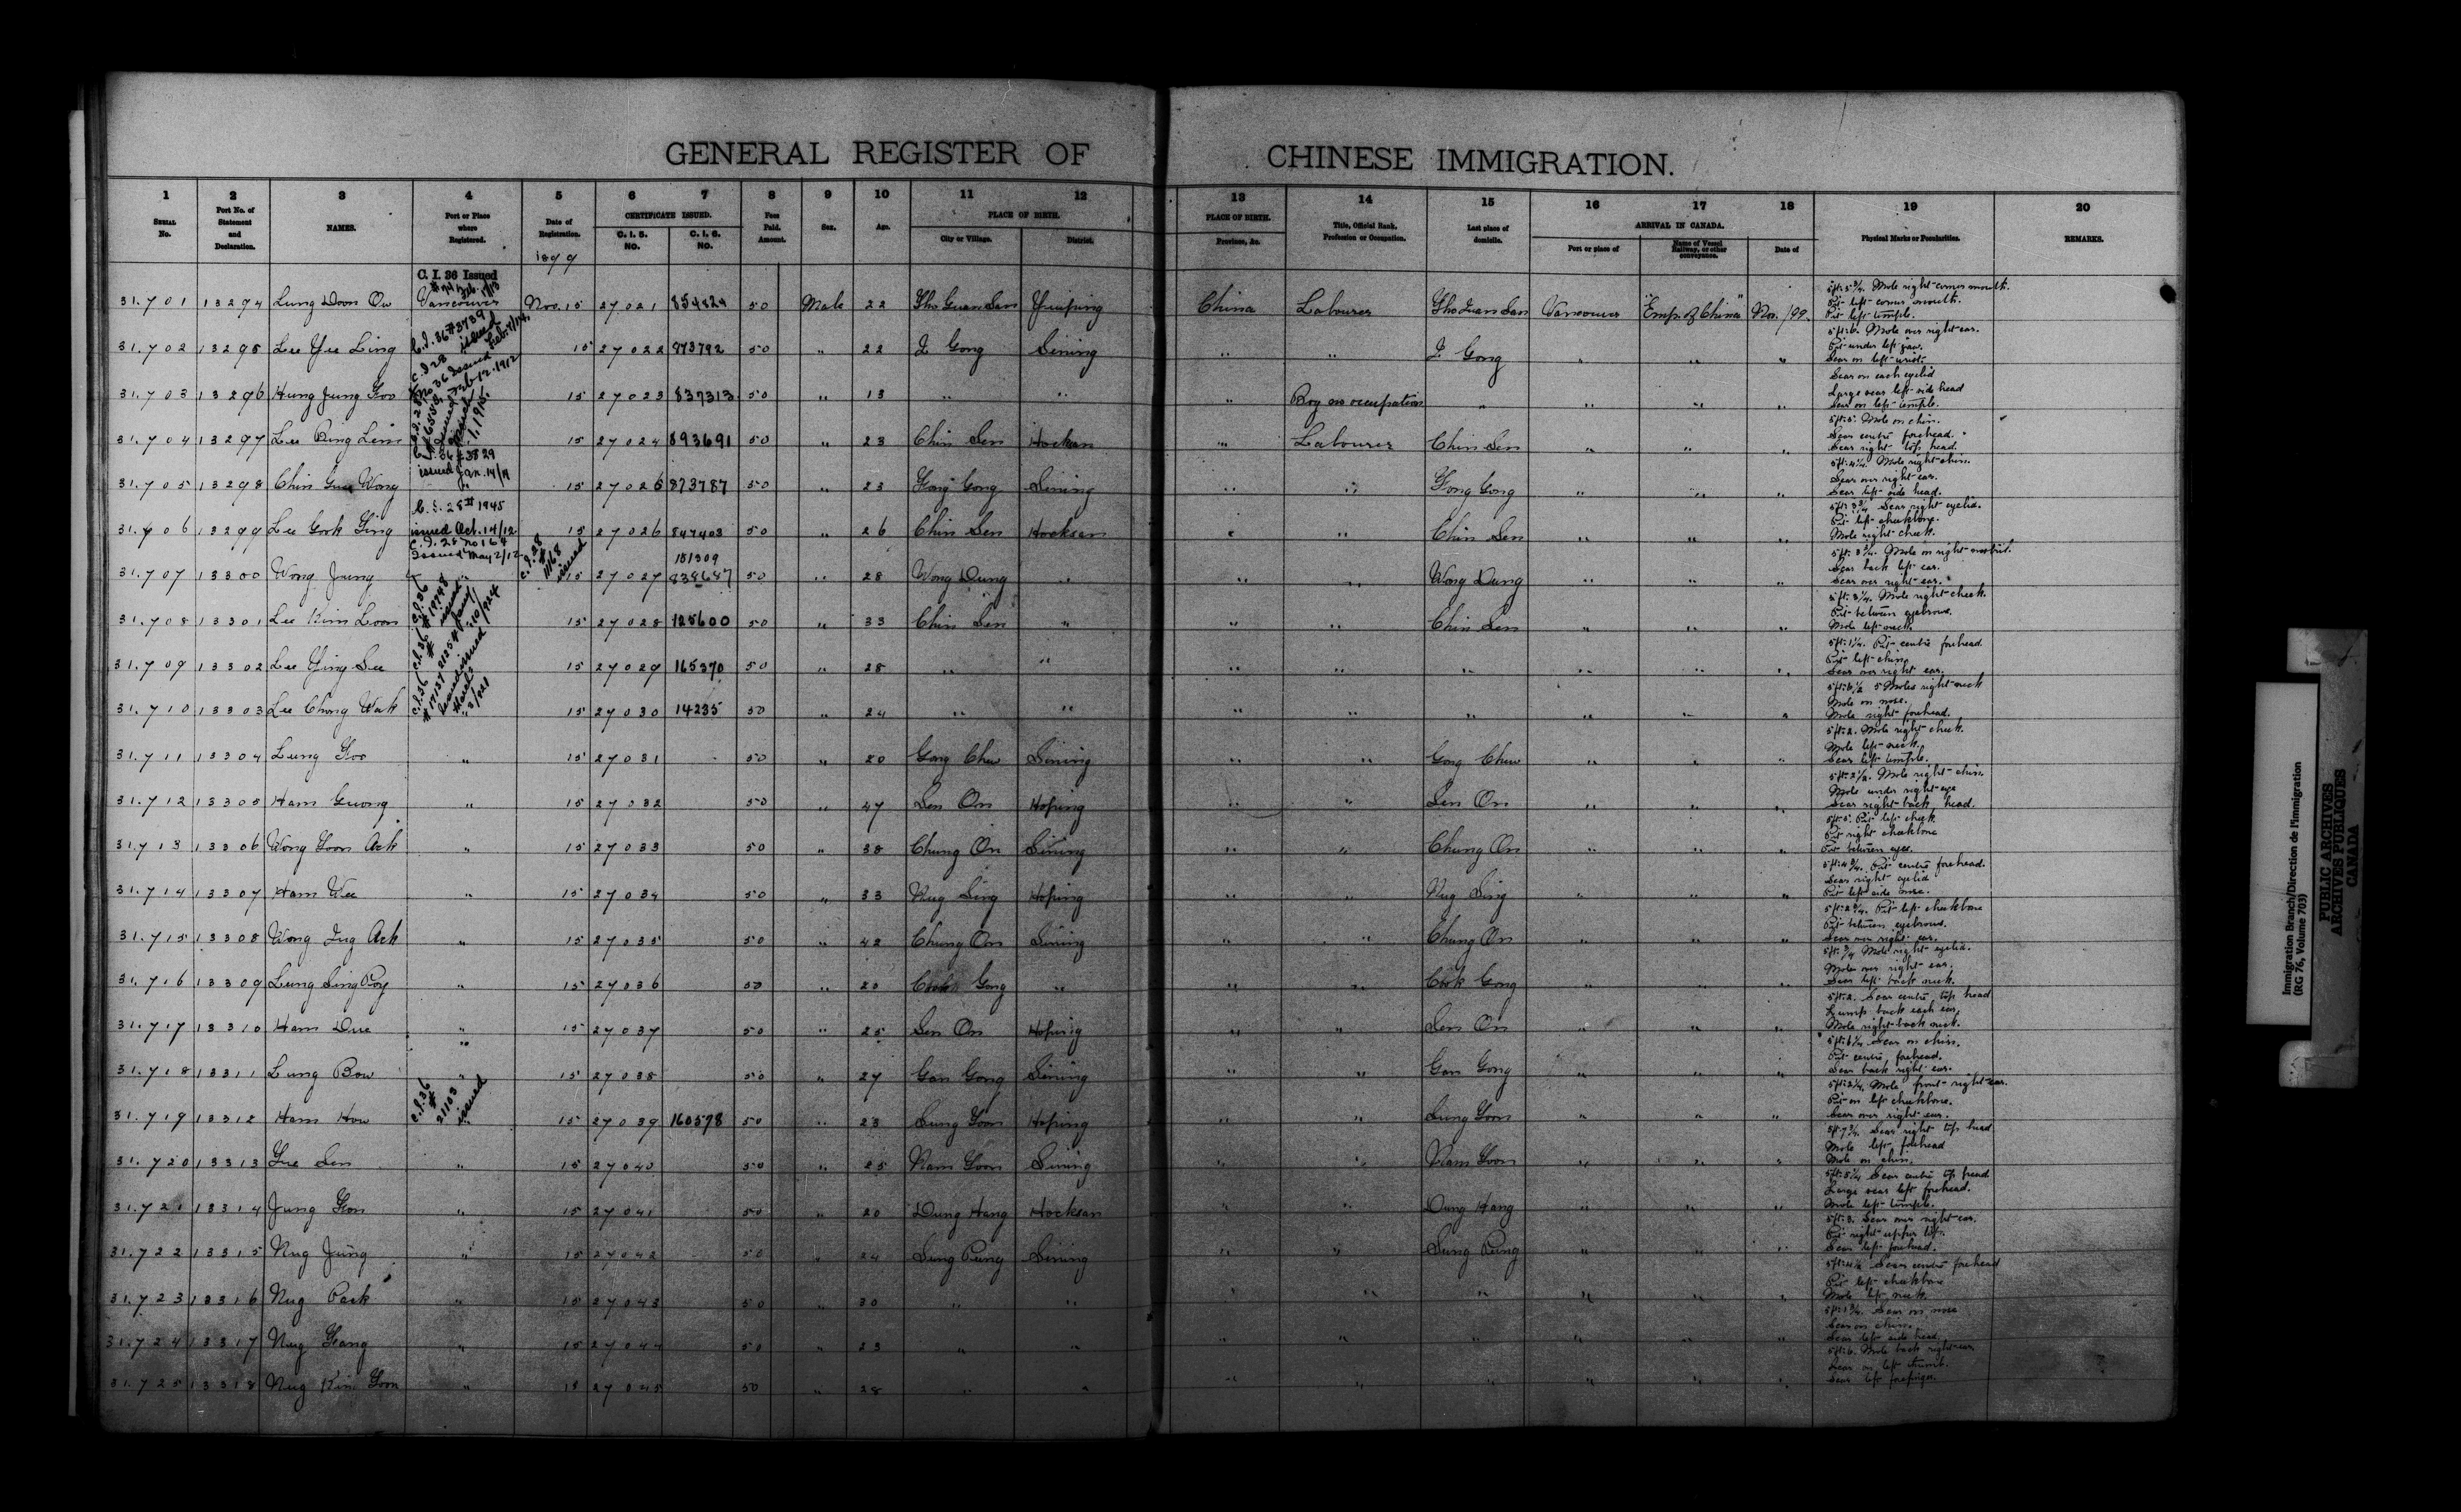 GENERAL REGISTER OF CHINESE IMMIGRATION.
1 2 3 4 5 6 7 8 9 10 11 12 13 14 15 16 17 18 19 20
Serial No. Port No. of Statement and Declaration. NAMES. Port or Place where Registered. Date of Registration. CERTIFICATE ISSUED. C. I. 5. NO. C. I. 6. NO. Fees Paid. Amount. Sex. Age. PLACE OF BIRTH. City or Village. District. PLACE OF BIRTH. Province, &c. Title, Official Rank, Profession or Occupation. Last place of domicile. ARRIVAL IN CANADA. Port or place of Name of Vessel Railway, or other conveyance. Date of Physical Marks or Peculiarities. REMARKS.
1899
C. I. 36 Issued
31.701 13294 Lung Doon Ow Vancouver Nov. 15 27021 854824 50 Male 22 Yinping China Labourer Vancouver "Emp. of China" Nov. /99. 5 ft. 5 3/4. Mole right corner mouth. Pit left corner mouth. Pit left temple.
31.702 13295 Lee Yee Ling 15 27022 873792 50 " 22 I Gong Sining " " I Gong " " " 5 ft. 6. Mole over right ear. Pit under left jaw. Scar on left wrist.
31.703 13296 Hung Jung Foo 15 27023 837313 50 " 13 " " " Boy no occupation " " " " Scar on each eyelid Large scar left side head Scar on left temple.
31.704 13297 Lee Bing Lim 15 27024 893691 50 " 23 Chin Sen Hocksan " Labourer Chin Sen " " " 5 ft. 5. Mole on chin. Scar centre forehead. Scar right top head.
issued Jan. 14/19
31.705 13298 Chin Guu Wong 15 27025 873787 50 " 23 Fong Gong Sining " " Fong Gong " " " 5 ft. 4 1/4. Mole right chin. Scar over right ear. Scar left side head.
C. I. 28 # 1945
issued Oct. 14/12
31.706 13299 Lee Gook Ging 15 27026 847403 50 " 26 Chin Sen Hocksan " " Chin Sen " " " 5 ft. 3 3/4 Scar right eyelid. Pit left cheekbone. Mole right cheek.
C. I. 28 No 164
Issued May 2/12
151309
31.707 13300 Wong Jung " 15 27027 838687 50 " 28 Wong Dung " " " Wong Dung " " " 5 ft. 3 3/4. Mole on right nostril. Scar back left ear. Scar over right ear.
31.708 13301 Lee Kim Loon " 15 27028 125600 50 " 33 Chin Sen " " " Chin Sen " " " 5 ft. 3 1/4. Mole right cheek. Pit between eyebrows. Mole left neck.
31.709 13302 Lee Ying See 15 27029 165370 50 " 28 " " " " " " " " 5 ft. 1 1/4. Pit centre forehead Pit left chin. Scar over right ear.
31.710 13303 Lee Chong Wah " 15 27030 14235 50 " 24 " " " " " " " " 5 ft. 6 1/2 5 Moles right neck Mole on nose. Mole right forehead.
31.711 13304 Lung Foo " 15 27031 50 " 20 Gong Chew Sining " " Gong Chew " " " 5 ft. 2. Mole right cheek. Mole left neck. Scar left temple.
31.712 13305 Ham Guong " 15 27032 50 " 47 Sen On Hoping " " Sen On " " " 5 ft. 2 1/2. Mole right chin. Mole under right eye Scar right back head.
31.713 13306 Wong Yoon Ack " 15 27033 50 " 38 Chung On Sining " " Chung On " " " 5 ft. 5. Pit left cheek Pit right cheekbone Pit between eyes.
31.714 13307 Ham Wee " 15 27034 50 " 33 Nug Sing Hoping " " Nug Sing " " " 5 ft. 4 3/4. Pit centre forehead. Scar right eyelid Pit left side nose.
31.715 13308 Wong Ing Ack " 15 27035 50 " 42 Chung On Sining " " Chung On " " " 5 ft. 2 3/4. Pit left cheekbone Pit between eyebrows. Scar over right ear.
31.716 13309 Lung Sing Poy " 15 27036 50 " 20 Cook Gong " " " Cook Gong " " " 5 ft. 3/4 Mole right eyelid. Mole over right ear. Scar left back neck.
31.717 13310 Ham Due " 15 27037 50 " 25 Sen On Hoping " " Sen On " " " 5 ft. 2. Scar centre top head Lump back each ear. Mole right back neck.
31.718 13311 Lung Bow " 15 27038 50 " 27 Gan Gong Sining " " Gan Gong " " " 5 ft. 6 1/4 Scar on chin. Pit centre forehead. Scar back right ear.
C.I.36 # 21103 issued
31.719 13312 Ham How " 15 27039 160578 50 " 23 Lung Yoon Hoping " " Lung Yoon " " " 5 ft. 2 1/4. Mole front right ear. Pit on left cheekbone. Scar over right ear.
31.720 13313 Yue Sen " 15 27040 50 " 25 Nam Yoon Sining " " Nam Yoon " " " 5 ft. 7 3/4. Scar right top head Mole left forehead Mole on chin.
31.721 13314 Jung Fon " 15 27041 50 " 20 Dung Hang Hocksan " " Dung Hang " " " 5 ft. 5 1/4 Scar centre top head Large scar left forehead. Mole left temple.
31.722 13315 Nug Jung " 15 27042 50 " 24 Sung Pung Sining " " Sung Pung " " " 5 ft. 3. Scar over right ear. Pit right upper lip. Scar left forehead.
31.723 13316 Nug Pack " 15 27043 50 " 30 " " " " " " " " Scar centre forehead Pit left cheekbone Mole left neck.
31.724 13317 Nug Fang " 15 27044 50 " 23 " " " " " " " " 5 ft. 1 3/4. Scar on nose Scar on chin. Scar left side head.
31.725 13318 Nug Kim Yoon " 15 27045 50 " 28 " " " " " " " " 5 ft. 6. Mole back right ear. Scar on left thumb. Scar left forefinger.
Immigration Branch/Direction de l'immigration
(RG 76, Volume 703)
PUBLIC ARCHIVES
ARCHIVES PUBLIQUES
CANADA